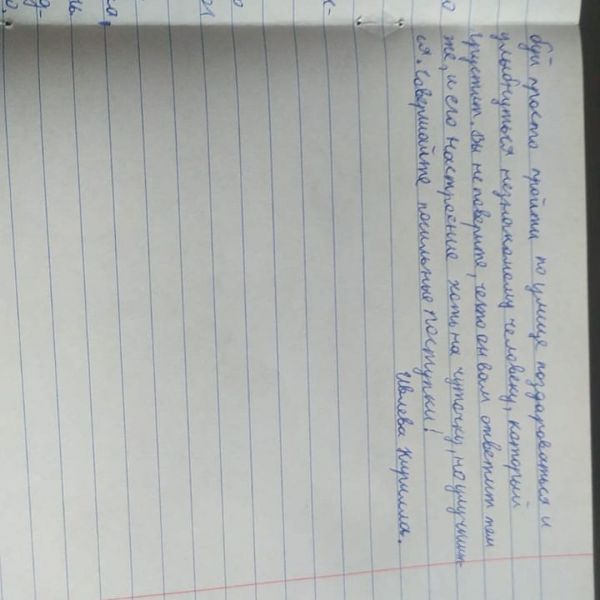 буй просто пройти по улице поздароваться и
улыбнуться незнакомому человеку, который
грустит. Вы не поверите, что он вам ответит тем
же, и его настроение хоть на чуточку, но улучшит-
ся. Совершайте посильные поступки!
Ивлева Кирилла.